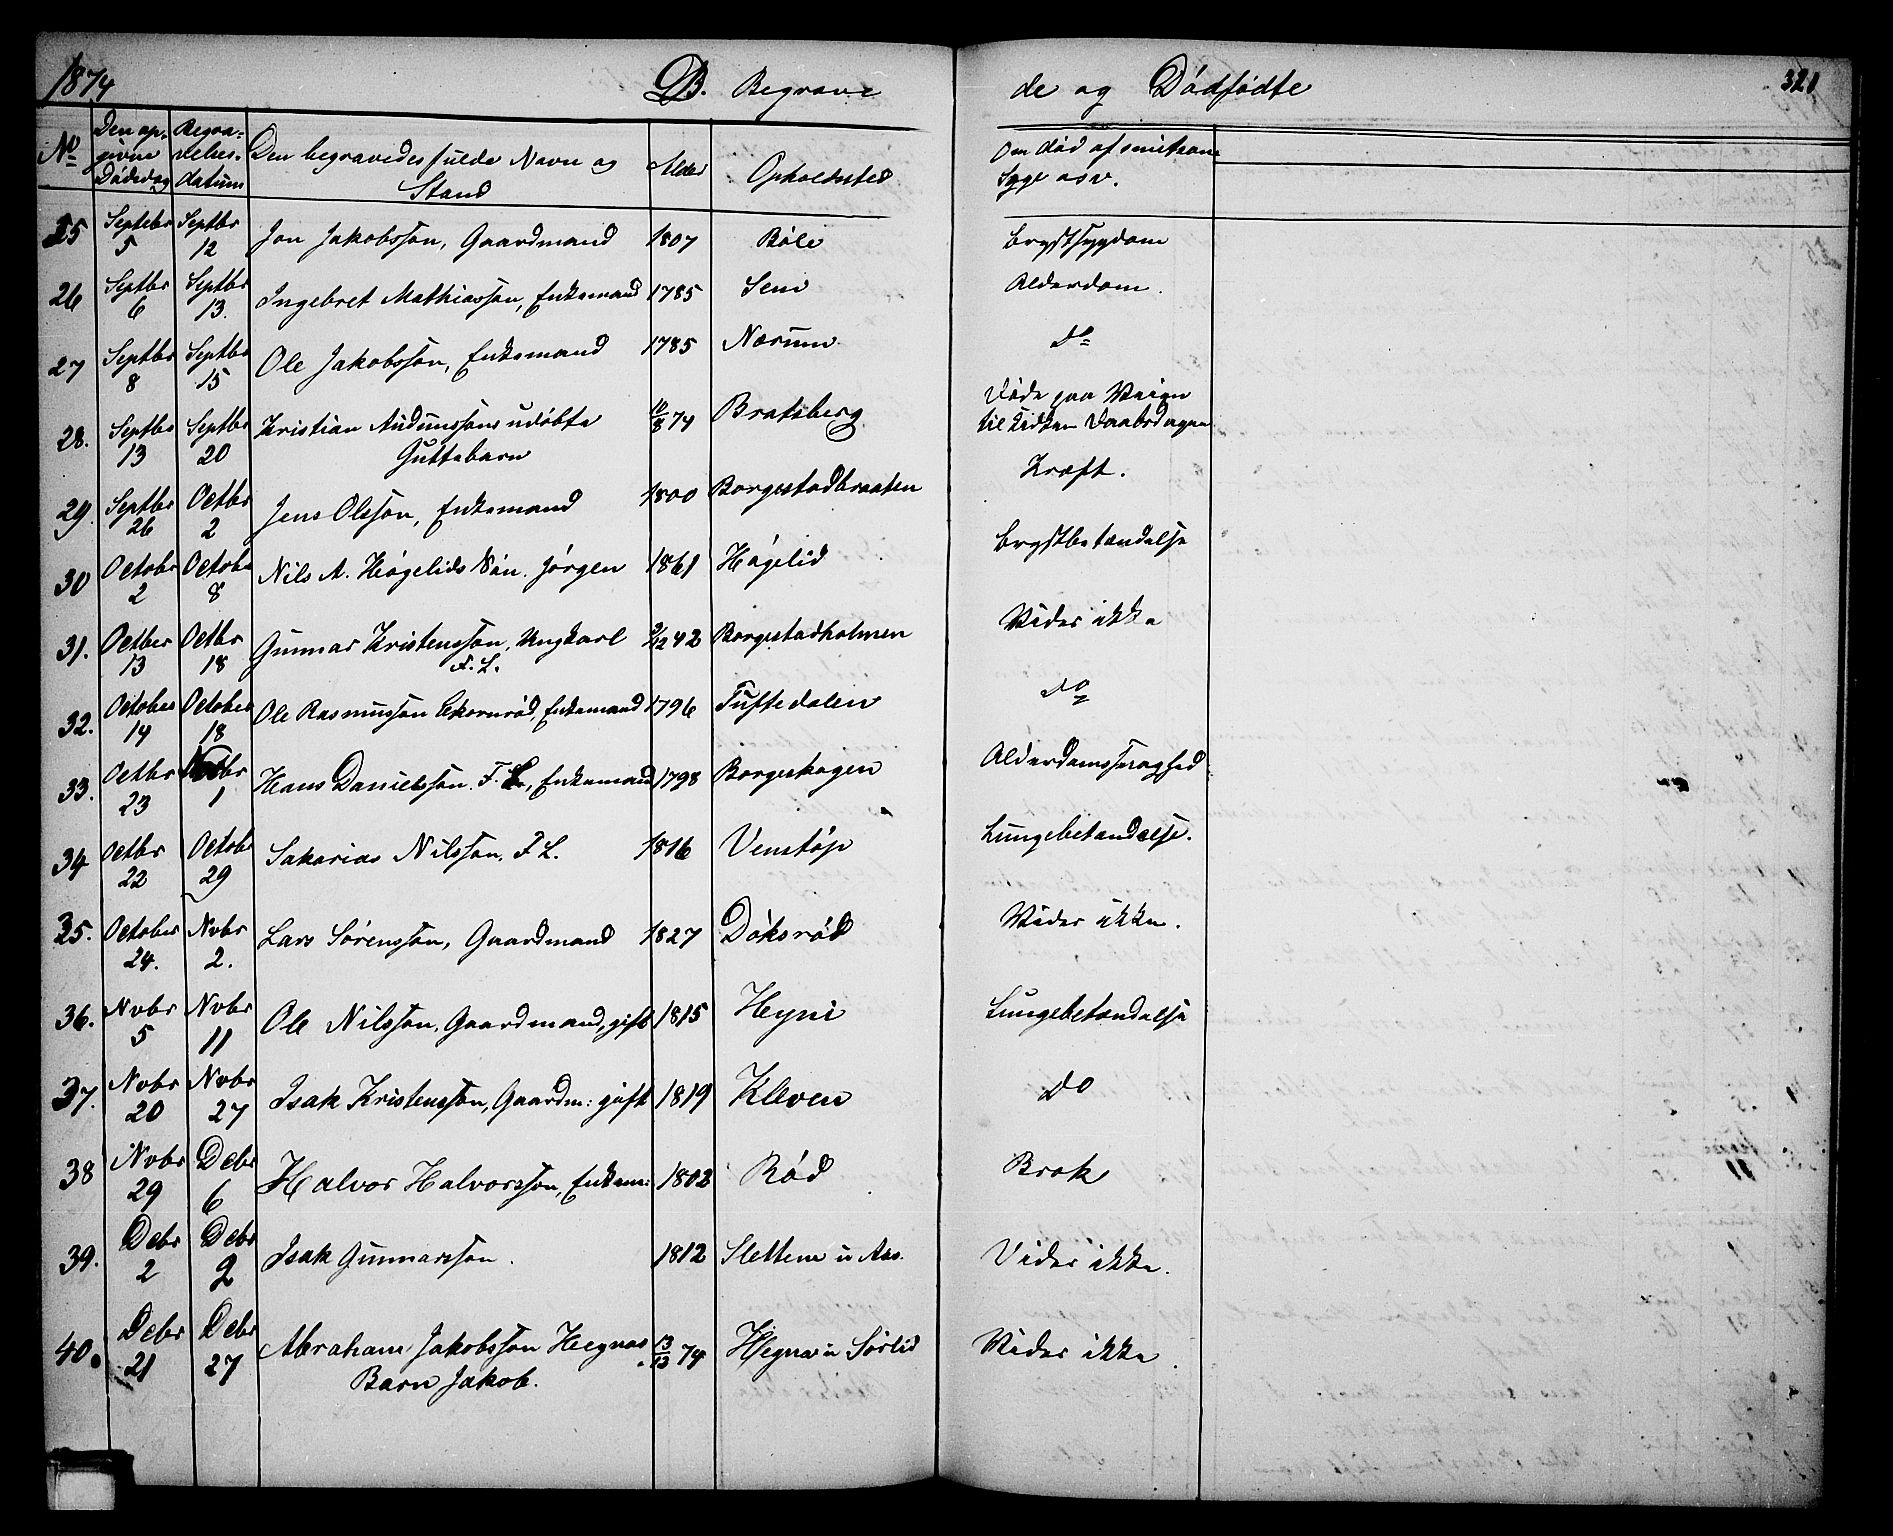 1874 B. Begrave
de og Dødfødte 321
No Den opgivne Dødsdag Begravelsesdatum Den begravedes fulde Navn og Stand Alder Opholdssted Om død af smitsom Syge osv.
25 Septebr 5 Septbr 12 Jon Jakobsson, Gaardmand 1807 Bøle Brystsygdom
26 Septbr 6 Septbr 13. Ingebret Mathiasson, Enkemand 1785 Sem Alderdom.
27 Septbr 8 Septbr 15 Ole Jakobsson, Enkemand 1785 Nærum do
28. Septbr 13 Septbr 20 Kristian Audunssons udøbte Guttebarn 10/8 74 Bratsberg Døde paa Veien til Kirken Daabsdagen
29. Septbr 26 Octbr 2 Jens Olsson, Enkemand 1800 Borgestadbraaten Kræft.
30 Octobr 2 Octobr 8 Nils A. Høgelids Søn. Jørgen 1861 Høgelid Brystbetændelse
31. Octber 13 Octbr 18 Gunnar Kristensson, Ungkarl F. L. 2/12 42 Borgestadholmen Vides ikke
32. October 14 October 18 Ole Rasmusson Ekornrød, Enkemand 1796 Tuftedalen do
33. Octbr 23 Novbr 1 Hans Danielsson. F. L., Enkemand 1798 Borgeskogen Alderdomssvaghed
34 Octbr 22 Octobr 29 Sakarias Nilsson, F L. 1816 Venstøp Lungebetændelse.
35. October 24. Nvbr 2. Lars Sørensson, Gaardmand 1827 Doksrød Vides ikke.
36. Nvbr 5 Nvbr 11 Ole Nilsson, Gaardmand, gift 1815 Heyni Lungebetændelse
37. Nvbr 20 Nvbr 27 Isak Kristensson, Gaardm: gift 1819 Kleven do
38 Nvbr 29 Debr 6 Halvor Halvorsson, Enkem: 1802 Rød Brok
39. Debr 2 Debr 2 Isak Gunnarsson. 1812 Slettene u Aas. Vides ikke.
40. Debr 21 Debr 27 Abraham Jakobsson Hegnas Barn Jakob. 13/12 74 Hegna u Sørlid Vides ikke.